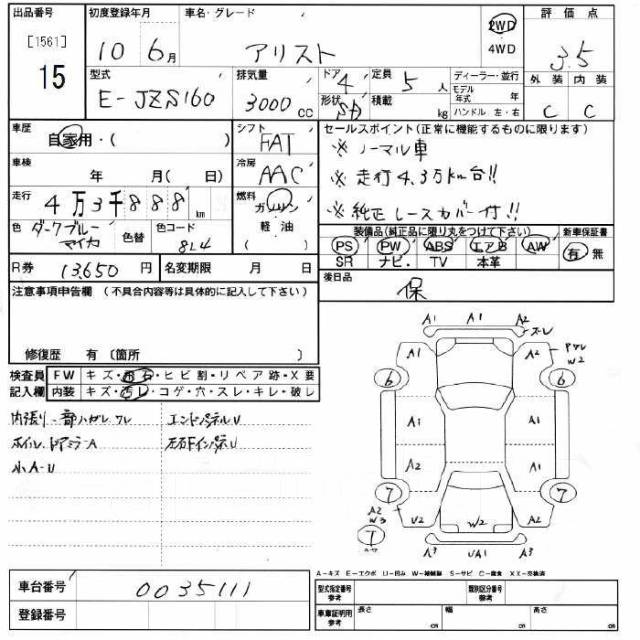 出品番号 初度登録年月 車名・グレード 2WD 評価点
[1561] 10 6月 アリスト 4WD 3.5
15
型式 排気量 ドア 4 定員 5人 ディーラー・並行 外装 内装
E-JZS160 3000cc 形状 SD 積載 kg モデル年式 年 C C
ハンドル 左・右
車歴 自家用・( ) シフト FAT セールスポイント(正常に機能するものに限ります)
車検 年 月( 日) 冷房 AAC ※ノーマル車
※走行4.3万km台!!
走行 4万3千888km 燃料 ガソリン ※純正レースカバー付!!
色 ダークブルーマイカ 色替 色コード 8L4 軽・油 装備品(純正品に限り丸をつけて下さい) 新車保証書
PS PW ABS エアB AW 有 無
R券 13,650円 名変期限 月 日 SR ナビ・ TV 本革
注意事項申告欄(不具合内容等は具体的に記入して下さい) 後日品 保
修復歴 有〔箇所 〕
検査員 FW キズ・飛石・ヒビ割・リペア跡・X要
記入欄 内装 キズ・汚レ・コゲ・穴・スレ・キレ・破レ
内張り一部ハガレ ワレ エンドパネルU
ホイル、ドアミラーA
小A-U
A1 A1 A2
スレ
A1 A2 ワレ
W2
6 6
A1 A1
A2 A1
7 7
A2
W3 U2 W2 A2
7
A3 UA1 A3
A-キズ E-エクボ U-凹み W-補修跡 S-サビ C-腐食 XX-交換済
車台番号 0035111 型式指定番号 参考 類別区分番号 参考
登録番号 車庫証明用 参考 長さ cm 幅 cm 高さ cm